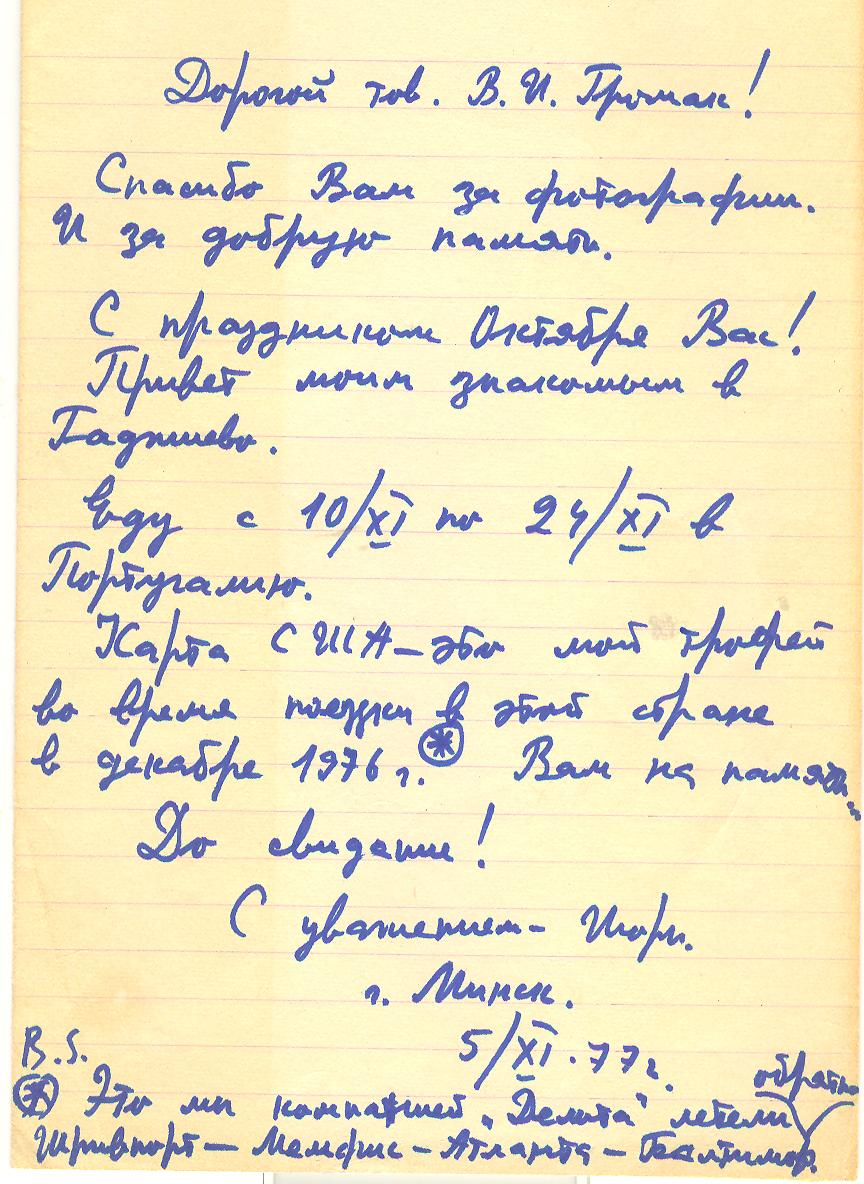 Дорогой тов. В. И. Громак!
Спасибо Вам за фотографии.
И за добрую память.
С праздником Октября Вас!
Привет моим знакомым в
Гаджиево.
Еду с 10/XI по 24/XI в
Португалию.
Карта США – это мой трофей
во время поездки в этой стране
в декабре 1976 г. * Вам на память..
До свидания!
С уважением –
г. Минск.
5/XI.77г.
B.S.
* Это мы компанией „Дельта" летели обратно
Шривпорт – Мемфис – Атланта – Балтимор.